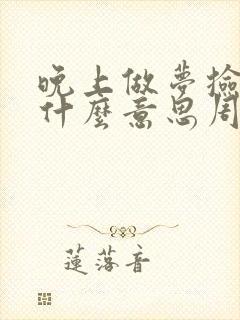 晚上做夢撿
什麼意思周
蓮落音